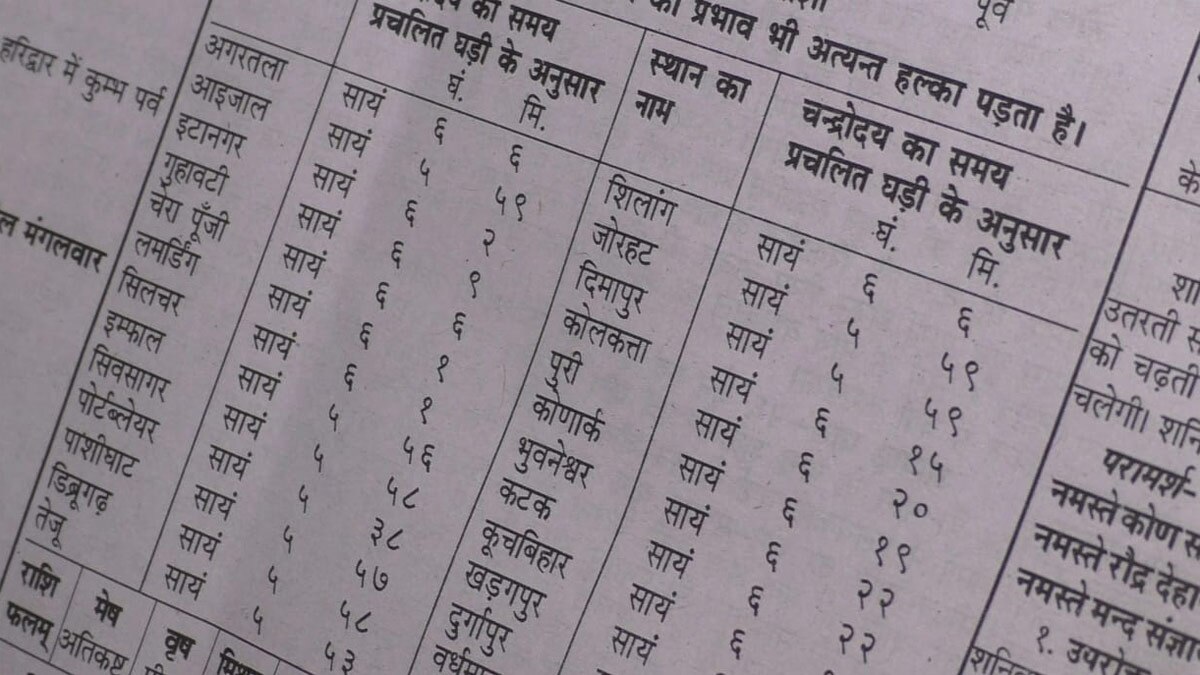 हरिद्वार में कुम्भ पर्व
मंगलवार
का समय
प्रचलित घड़ी के अनुसार
घं. मि.
अगरतला सायं ६ ६
आइजाल सायं ५ ५९
इटानगर सायं ६ २
गुहावटी सायं ६ १
चेरा पूँजी सायं ६ ६
लमर्डिंग सायं ६ १
सिलचर सायं ६ १
इम्फाल सायं ५ ५६
सिवसागर सायं ५ ५८
पोर्टब्लेयर सायं ५ ३८
पांशीघाट सायं ५ ५७
डिब्रूगढ़ सायं ५ ५८
तेजू सायं ५ ५३
राशि फलम्
मेष
अतिकष्ट
वृष
पूर्व
का प्रभाव भी अत्यन्त हल्का पड़ता है।
स्थान का नाम
चन्द्रोदय का समय
प्रचलित घड़ी के अनुसार
घं. मि.
शिलांग सायं ६ ६
जोरहट सायं ५ ५९
दिमापुर सायं ५ ५९
कोलकत्ता सायं ६ १५
पुरी सायं ६ २०
कोणार्क सायं ६ १९
भुवनेश्वर सायं ६ २२
कटक सायं ६ २२
कूचबिहार सायं ६
खड़गपुर
दुर्गापुर
उतरती
को चढ़ती
चलेगी। शनि
परामर्श-
नमस्ते कोण
नमस्ते रौद्र देहा
नमस्ते मन्द संज्ञा
१. उपरोक्त